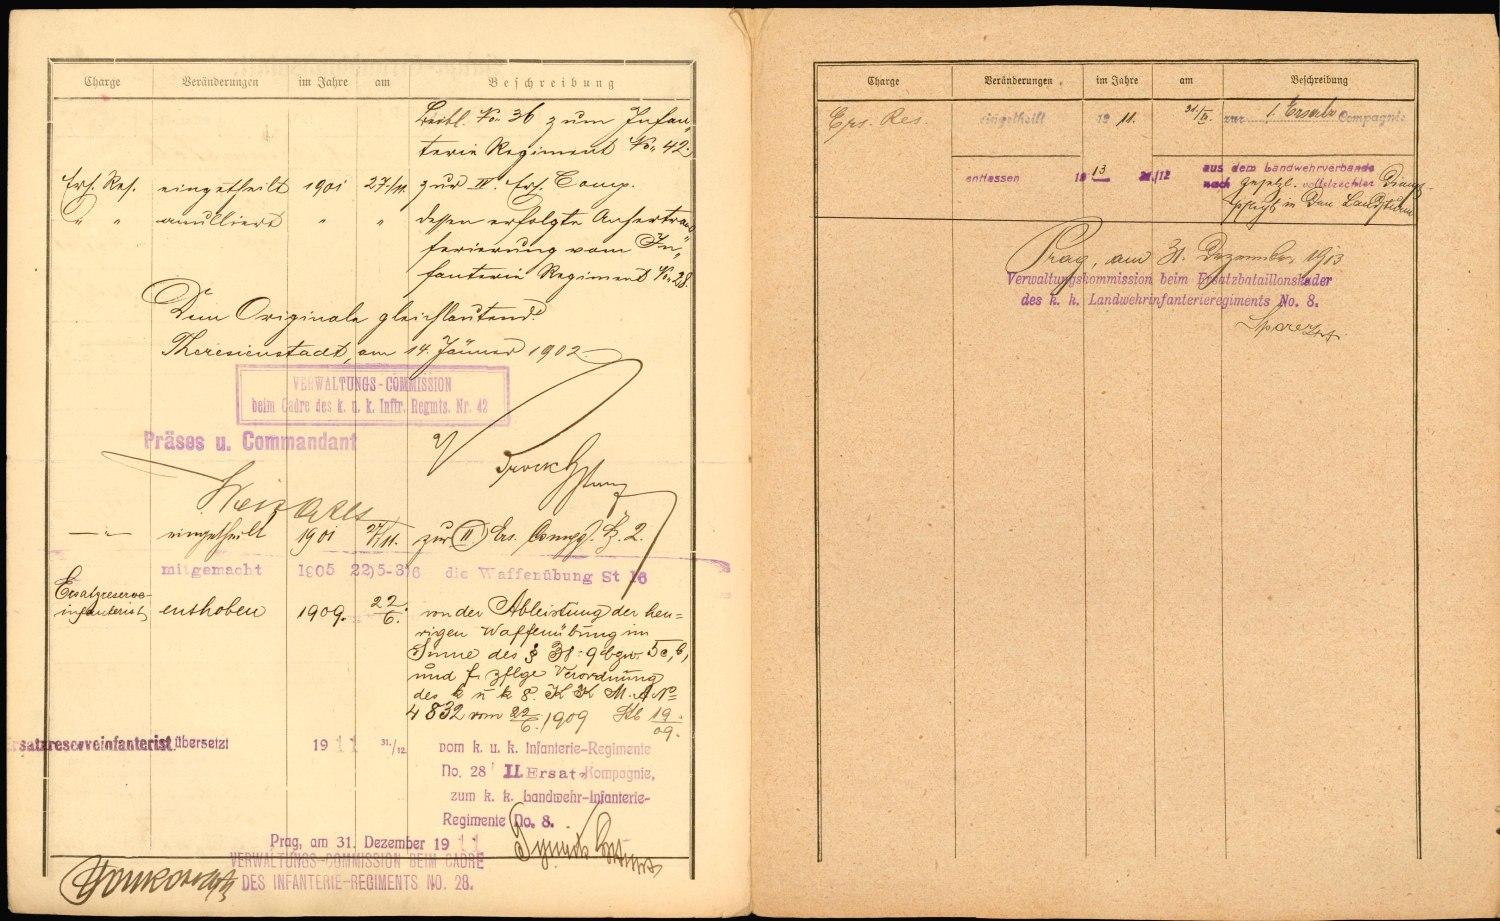 Charge Veränderungen im Jahre am Beschreibung
Beibl. No. 36 zum Infan„
terie Regiment No. 42.
Ers. Res. eingetheilt 1901 27./11. zur IV. Ers. Comp.
„ „ annulliert „ „ dessen erfolgte Anher
ferierung vom In„
fanterie Regiment No. 28.
Dem Originale gleichlautend.
Theresienstadt, am 14. Jänner 1902
VERWALTUNGS-COMMISSION
beim Cadre des k. u. k. Inftr. Regmts. Nr. 42
Präses u. Commandant
eingetheilt 1901 27/11. zur II Ers. Compg. Z. 2.
mitgemacht 1905 22/5-3/6 die Waffenübung St 16
Ersatzreserve-
infanterist enthoben 1909. 22/6. von der Ableistung der heu=
rigen Waffenübung im
Sinne des § bzw. 5c, b,
und f zflge Verordnung
des k u k 8. K K M. A No
4832 vom 22/6. 1909 19./09.
Ersatzreserveinfanterist übersetzt 1911 31./12. vom k. u. k. Infanterie-Regimente
No. 28 II Ersatz-Kompagnie,
zum k. k. Landwehr-Infanterie-
Regimente No. 8.
Prag, am 31. Dezember 1911
VERWALTUNGS-COMMISSION BEIM CADRE
DES INFANTERIE-REGIMENTS NO. 28.
Charge Veränderungen im Jahre am Beschreibung
Ers. Res. eingetheilt 1911. zur 1. Ersatz Compagnie
entlassen 1913 31/12 aus dem Landwehrverbande
nach gesetzl. vollstreckter Dienst-
pflicht in den Landsturm
Prag, am 31. Dezember 1913
Verwaltungskommission beim Ersatzbataillonskader
des k. k. Landwehrinfanterieregiments No. 8.